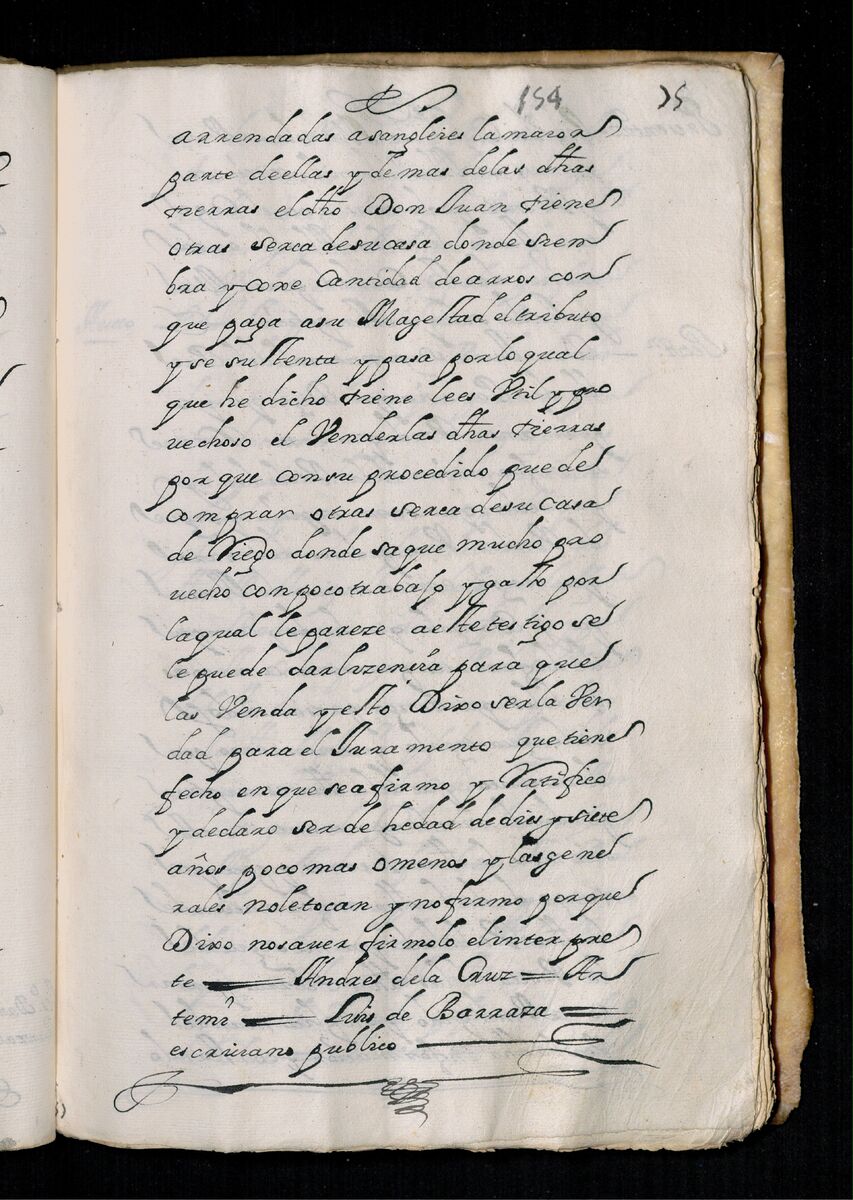 154 35
arrendadas a sangleies la maior
parte de ellas y demas de las dhas
tierras el dho Don Juan tiene
otras serca de su casa donde siem
bra y coxe Cantidad de arros con
que paga a su Magestad el tributo
y se sustenta y pasa por lo qual
que he dicho tiene le es Vtil y pro
uechoso el Venderlas dhas tierras
por que con su procedido puede
comprar otras serca de su casa
de Riego donde saque mucho pro
uecho con poco trabajo y gasto por
la qual le pareze a este testigo se
le puede dar lizencia para que
las Venda y esto Dixo ser la Ver
dad para el Juramento que tiene
fecho en que se afirmo y Ratifico
y declaro ser de hedad de dies y siete
años poco mas o menos y las gene
rales no le tocan y no firmo porque
Dixo no sauer firmolo el interpre
te — Andres de la Cruz = An
temi — Luis de Barraza =
escriuano publico —